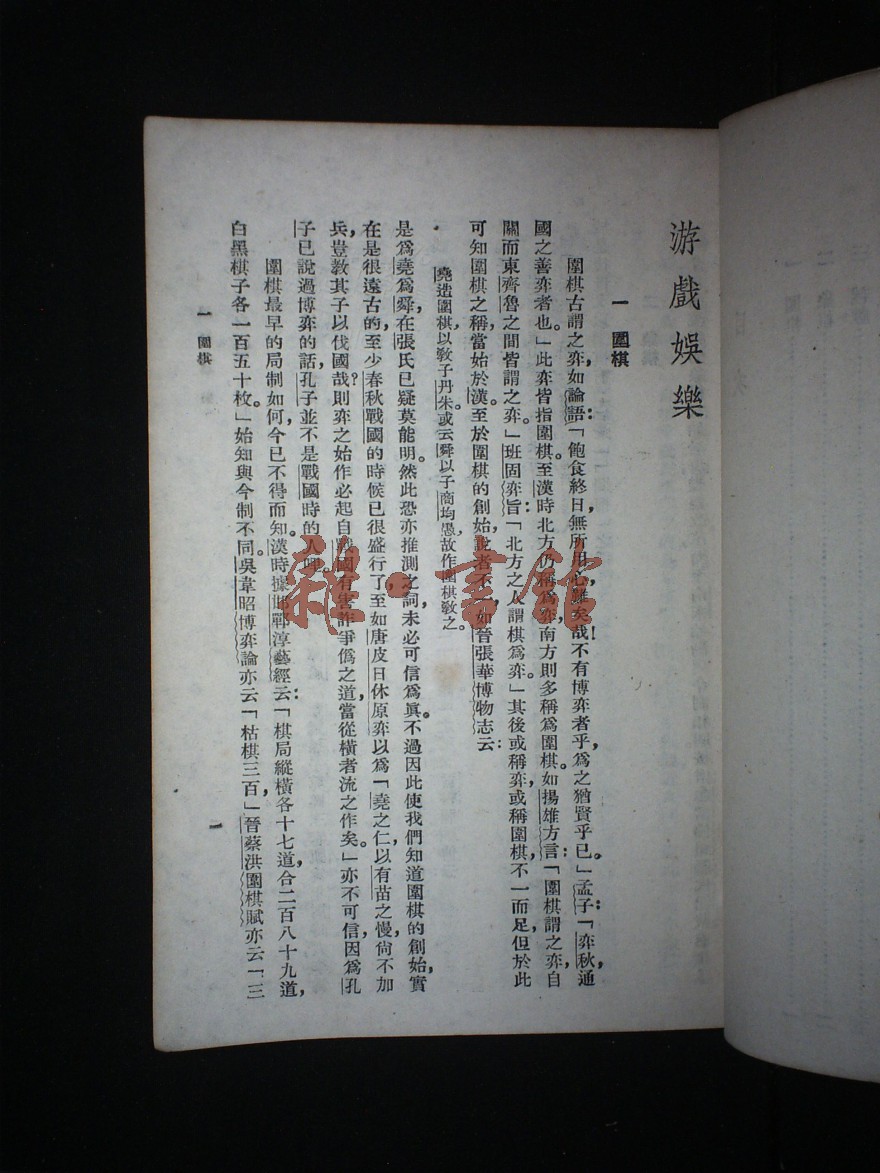 游戲娛樂
一　圍棋
圍棋古謂之弈，如論語：「飽食終日，無所用心，難矣哉！不有博弈者乎，爲之猶賢乎已。」孟子：「弈秋，通
國之善弈者也。」此弈皆指圍棋。至漢時北方仍稱爲弈，南方則多稱爲圍棋。如揚雄方言：「圍棋謂之弈，自
關而東，齊魯之間皆謂之弈。」班固弈旨：「北方之人謂棋爲弈。」其後或稱弈，或稱圍棋，不一而足，但於此
可知圍棋之稱，當始於漢。至於圍棋的創始，說者不一，如晉張華博物志云：
堯造圍棋，以敎子丹朱。或云舜以子商均愚，故作圍棋敎之。
是爲堯爲舜，在張氏已疑莫能明。然此恐亦推測之詞，未必可信爲眞。不過因此使我們知道圍棋的創始，實
在是很遠古的，至少春秋戰國的時候已很盛行了。至如唐皮日休原弈以爲「堯之仁，以有苗之慢，尙不加
兵，豈敎其子以伐國哉？則弈之始作，必起自戰國，有害詐爭僞之道，當從橫者流之作矣。」亦不可信，因爲孔
子已說過博弈的話，孔子並不是戰國時的人哩。
圍棋最早的局制如何，今已不得而知。漢時據邯鄲淳藝經云：「棋局縱橫各十七道，合二百八十九道，
白黑棋子各一百五十枚。」始知與今制不同。吳韋昭博弈論亦云「枯棋三百，」晉蔡洪圍棋賦亦云「三
一　圍棋
一
雜·書館